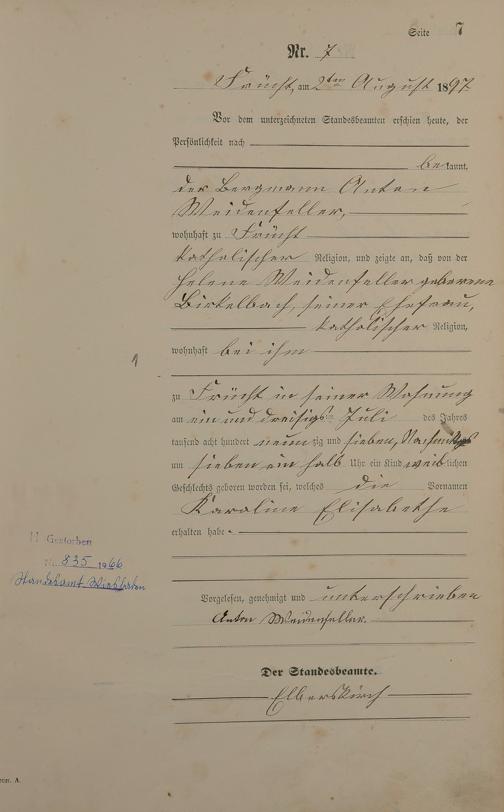 Seite 7
Nr. 7
Frücht, am 2ten August 1897
Vor dem unterzeichneten Standesbeamten erschien heute, der
Persönlichkeit nach
bekannt,
der Bergmann Anton
Weidenfeller,
wohnhaft zu Frücht
katholischer Religion, und zeigte an, daß von der
Helene Weidenfeller geborene
Birkelbach, seiner Ehefrau,
katholischer Religion,
wohnhaft bei ihm
1
zu Frücht in seiner Wohnung
am ein und dreisigsten Juli des Jahres
tausend acht hundert neunzig und sieben, Nachmittags
um sieben ein halb Uhr ein Kind weiblichen
Geschlechts geboren worden sei, welches die Vornamen
Karoline Elisabethe
erhalten habe.
H Gestorben
Nr. 835 1966
Standesamt Wiesbaden
Vorgelesen, genehmigt und unterschrieben
Anton Weidenfeller.
Der Standesbeamte.
Elberskirch
A.